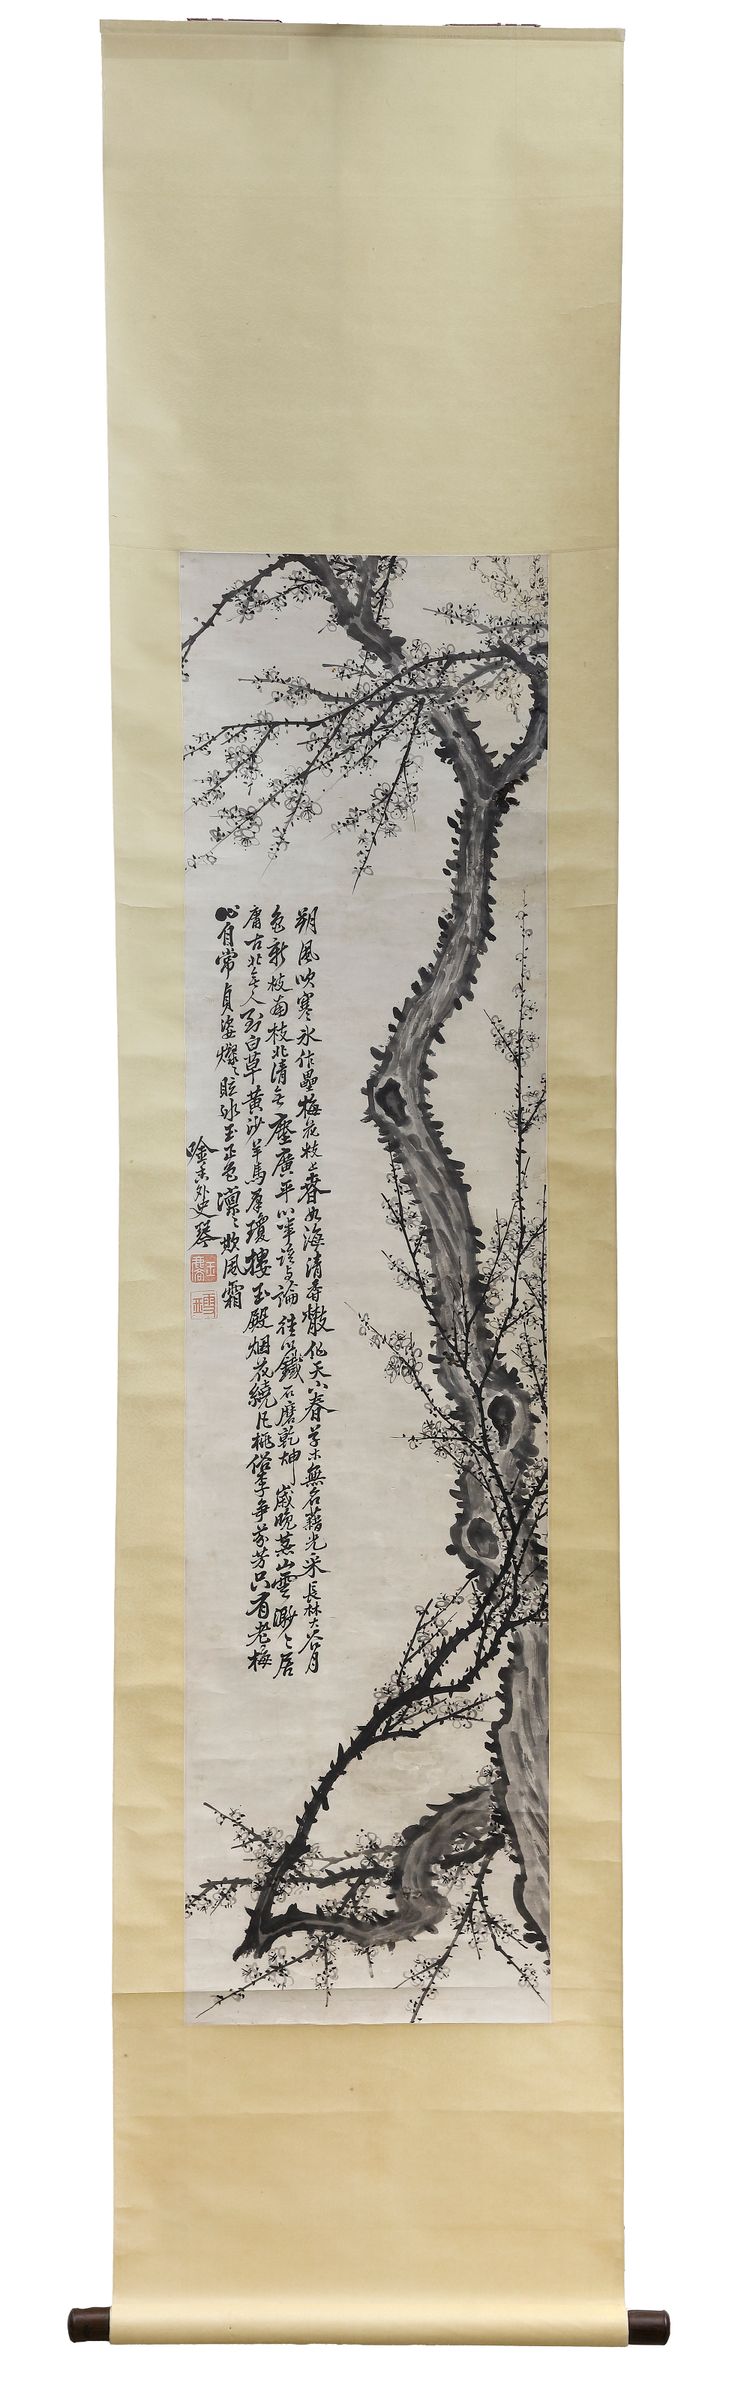 朔風吹寒冰作壘梅花枝上春如海清香散作天下春草木無名藉光采長林大谷月
色新枝南枝北清無塵廣平心事誰與論往以鐵石磨乾坤歲晚燕山雲渺〻居
庸古北無人到白草黃沙羊馬羣瓊樓玉殿烟花繞凡桃俗李爭芬芳只有老梅
心自常貞姿燦〻眩冰玉正色凜〻欺風霜
外史